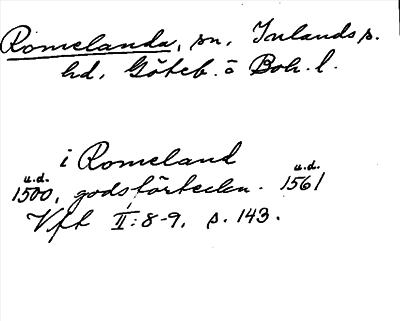 Romelanda, sn, Inlands s.
hd, Göteb. o Boh. l.
i Romeland
u.d. u.d.
1500, godsförteckn. 1561
Vft II:8-9, s. 143.